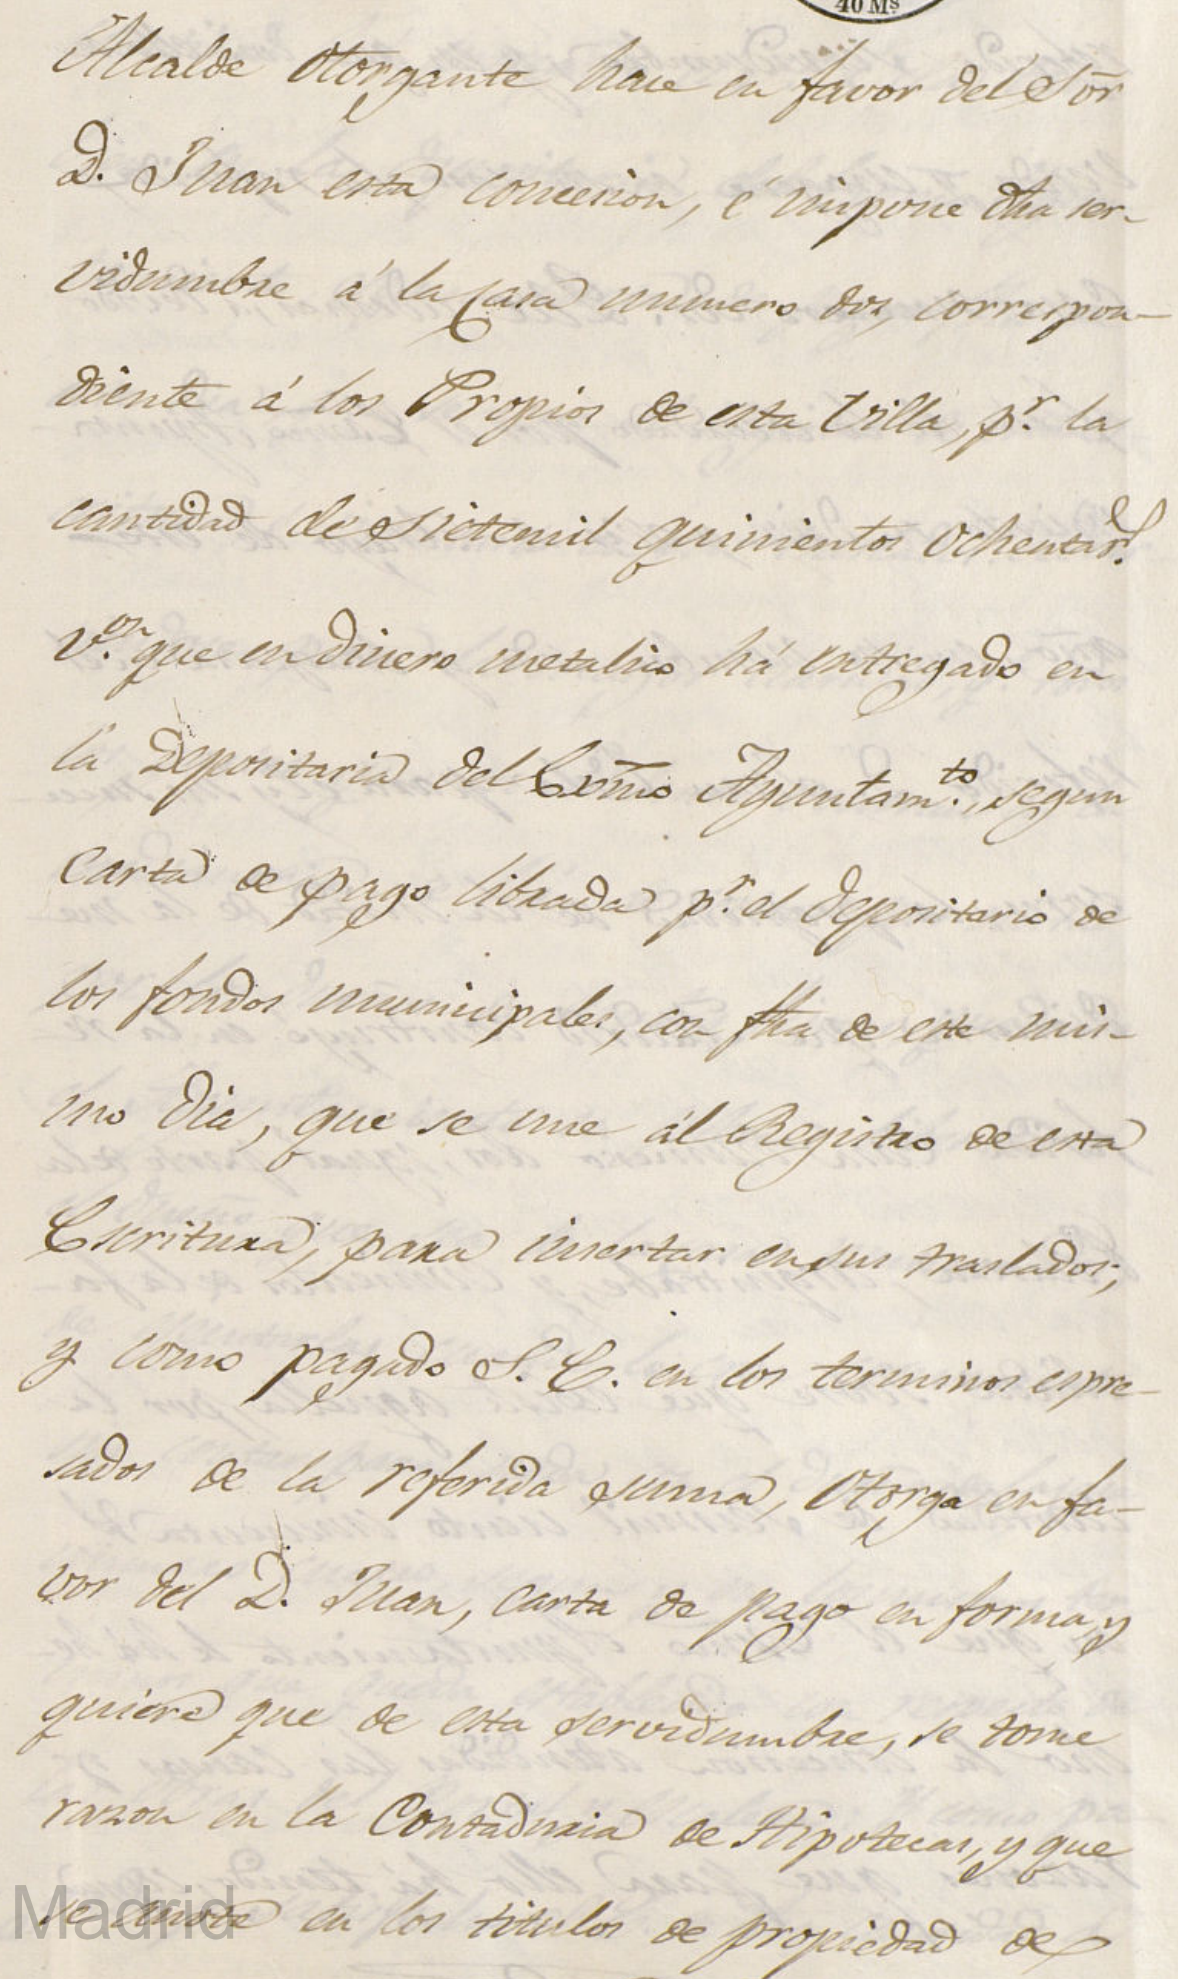 40 Ms
Alcalde otorgante hace en favor del Sor
D. Juan esta concesion, é impone dha ser-
vidumbre á la Casa numero dos, correspon-
diente á los Propios de esta Villa, pr. la
cantidad de sietemil quinientos ochenta rs.
von. que en dinero metalico há entregado en
la Depositaria del Exmo Ayuntamto., segun
Carta de pago librada pr. el depositario de
los fondos municipales, con fha de este mis-
mo dia, que se une ál Registro de esta
Escritura, para insertar en sus traslados;
y como pagado S. E. en los terminos espre-
sados de la referida suma, otorga en fa-
vor del D. Juan, carta de pago en forma, y
quiere que de esta servidumbre, se tome
razon en la Contaduria de Hipotecas, y que
se anote en los titulos de propiedad de
Madrid